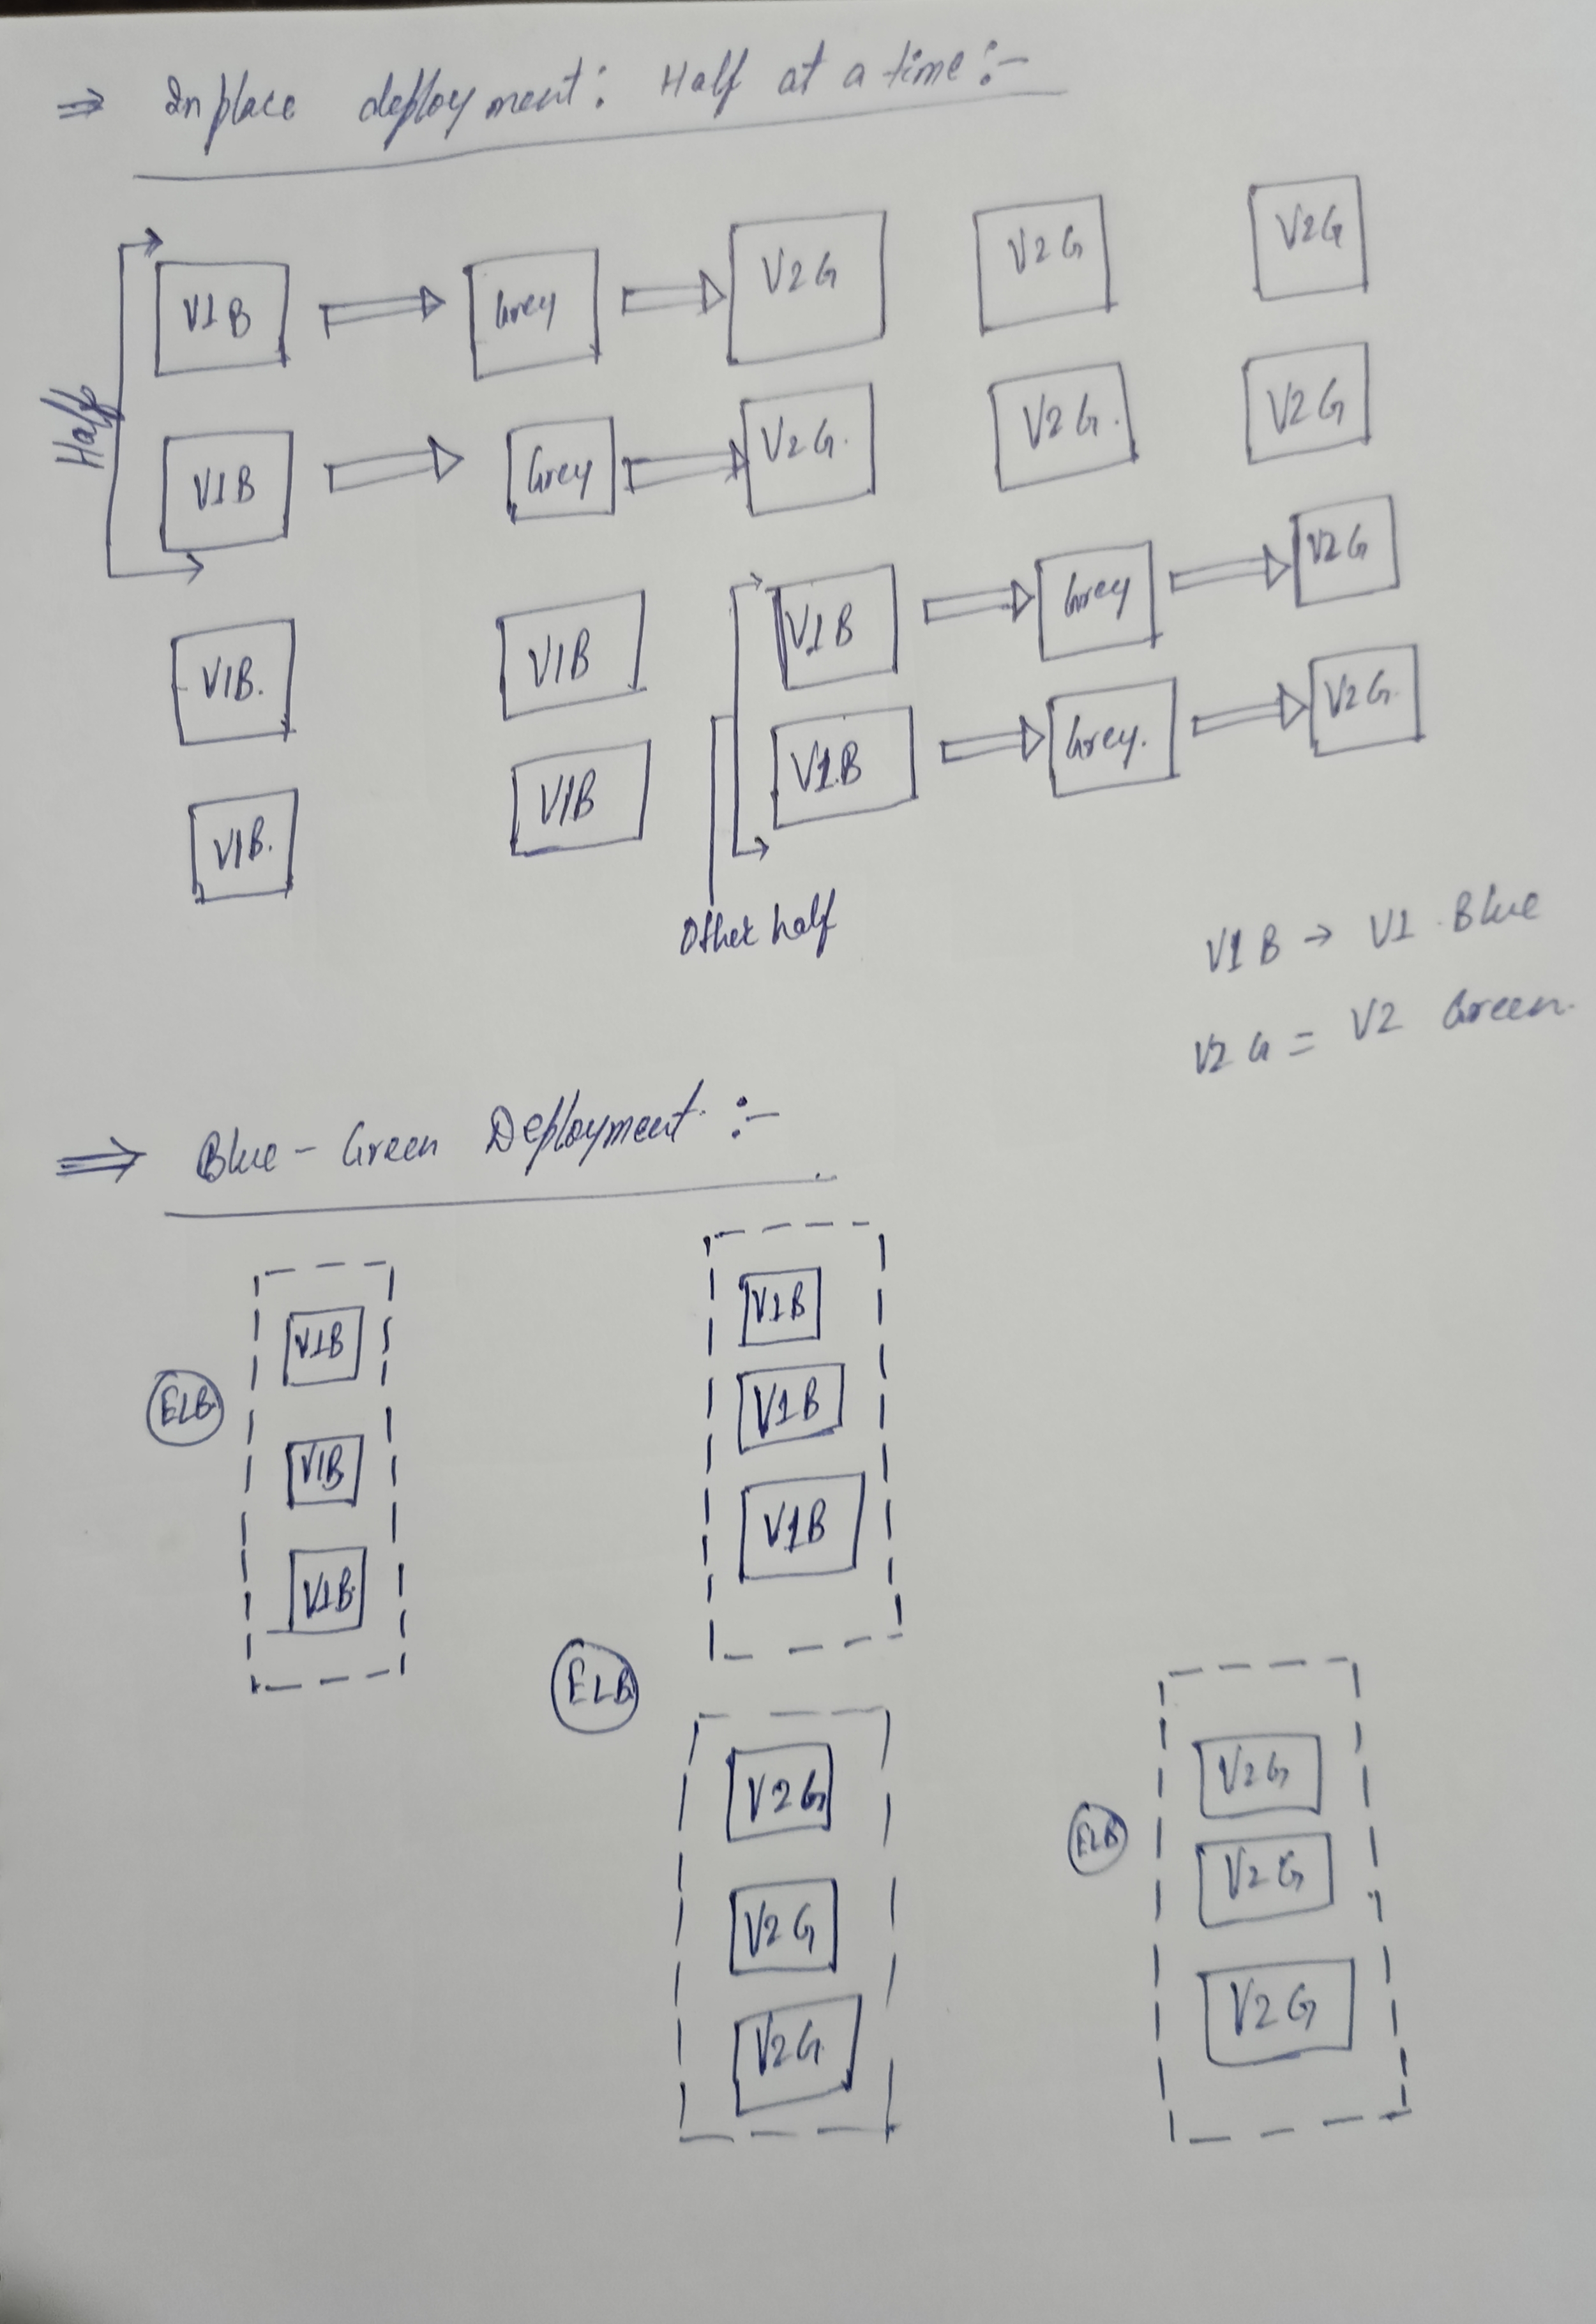 ⇒ Inplace deployment: Half at a time:-
V1B Grey V2G V2G V2G
Half
V1B Grey V2G. V2G. V2G
V1B. V1B V1B Grey V2G
V1B. V1B V1B Grey. V2G.
Other half
V1B → V1 Blue
V2G = V2 Green.
⇒ Blue-Green Deployment:-
V1B
ELB
V1B
V1B
V1B
V1B
V1B
ELB
V2G
V2G
V2G
V2G
ELB
V2G
V2G